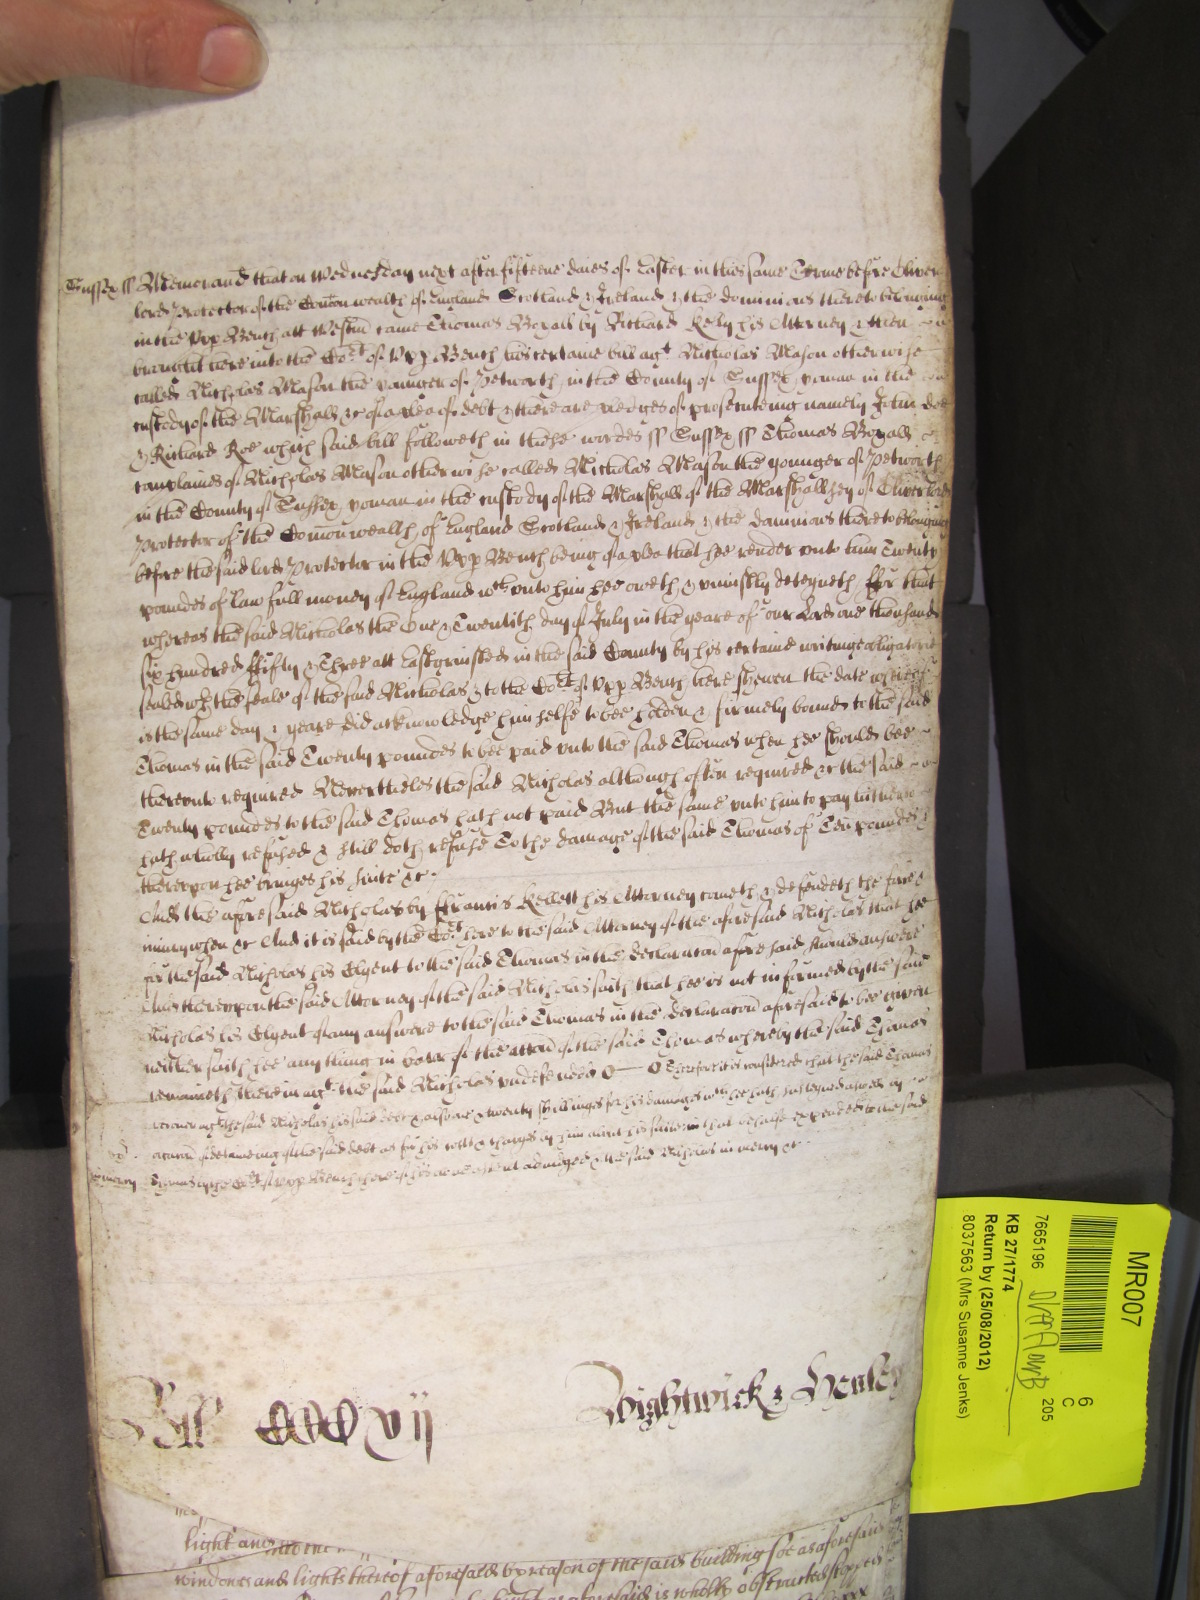 Sussex ss Memorand that on Wednesday next after fifteene daies of Easter in this same Terme before Oliver
lord Protector of the Comon wealth of England Scotland & Ireland & the dominions thereto belonging
in the Upp Bench att Westm came Thomas Boxall by Richard Kely his Attorney & then
brought here into the Cort of Upp Bench his certaine bill agt Nicholas Mason otherwise
called Nicholas Mason the younger of Petworth in the County of Sussex yoman in the
custody of the Marshall &c of a plea of debt & there are pledges of prosecuteing namely John Doe
& Richard Roe which said bill followeth in these wordes ss Sussex ss Thomas Boxall
complaines of Nicholas Mason otherwise called Nicholas Mason the younger of Petworth
in the County of Sussex yoman in the custody of the Marshall of the Marshallsey of Oliver lord
Protector of the Comonwealth of England Scotland & Ireland & the dominions thereto belonging
before the said lord Protector in the Upp Bench being of a plea that hee render unto him Twenty
poundes of lawfull money of England wch unto him hee oweth & uniustly deteyneth ffor that
whereas the said Nicholas the One & Twentith day of July in the yeare of our Lord one thousand
six hundred ffifty & Three att Eastgrinsted in the said County by his certaine writinge obligatorie
sealed wth the seale of the said Nicholas & to the Cort of Upp Bench here shewen the date whereof
is the same day & yeare did acknowledge himselfe to bee holden & firmely bound to the said
Thomas in the said Twenty poundes to bee paid unto the said Thomas when hee should bee
thereunto required Nevertheles the said Nicholas although often required &c the said
Twenty poundes to the said Thomas hath not paid But the same unto him to pay hitherto
hath wholly refused & still doth refuse To the damage of the said Thomas of Ten poundes &
thereupon hee bringes his suite &c
And the aforesaid Nicholas by ffrancis Kellett his Attorney cometh & defendeth the force &
iniury when &c And it is said by the Cort here to the said Attorney of the aforesaid Nicholas that hee
for the said Nicholas his Clyent to the said Thomas in the declaracon aforesaid should answere
And thereupon the said Attorney of the said Nicholas saith that hee is not informed by the said
Nicholas his Clyent of any answere to the said Thomas in the declaracon aforesaid to bee given
neither saith hee any thing in barr of the accon of the said Thomas whereby the said Thomas
remaineth therein agt the said Nicholas undefended Therefore it is considered that the said Thomas
recover agt the said Nicholas his said debt & alsoe twenty shillinges for his damages wch hee hath susteyned aswell by
occacon of deteineing of the said debt as for his costes & charges by him about his suite in that behalfe expended to the said
Thomas by the Cort of Upp Bench here of his assent adiudged & the said Nicholas in mercy &c
in mercy
CCCCxvii
Wightwick & Henley
light and
windowes and lights thereof aforesaid by reason of the said building soe as aforesaid
is wholly obstructed stopped
MR007
6
C
205
7665196
KB 27/1774
Return by (25/08/2012)
8037563 (Mrs Susanne Jenks)